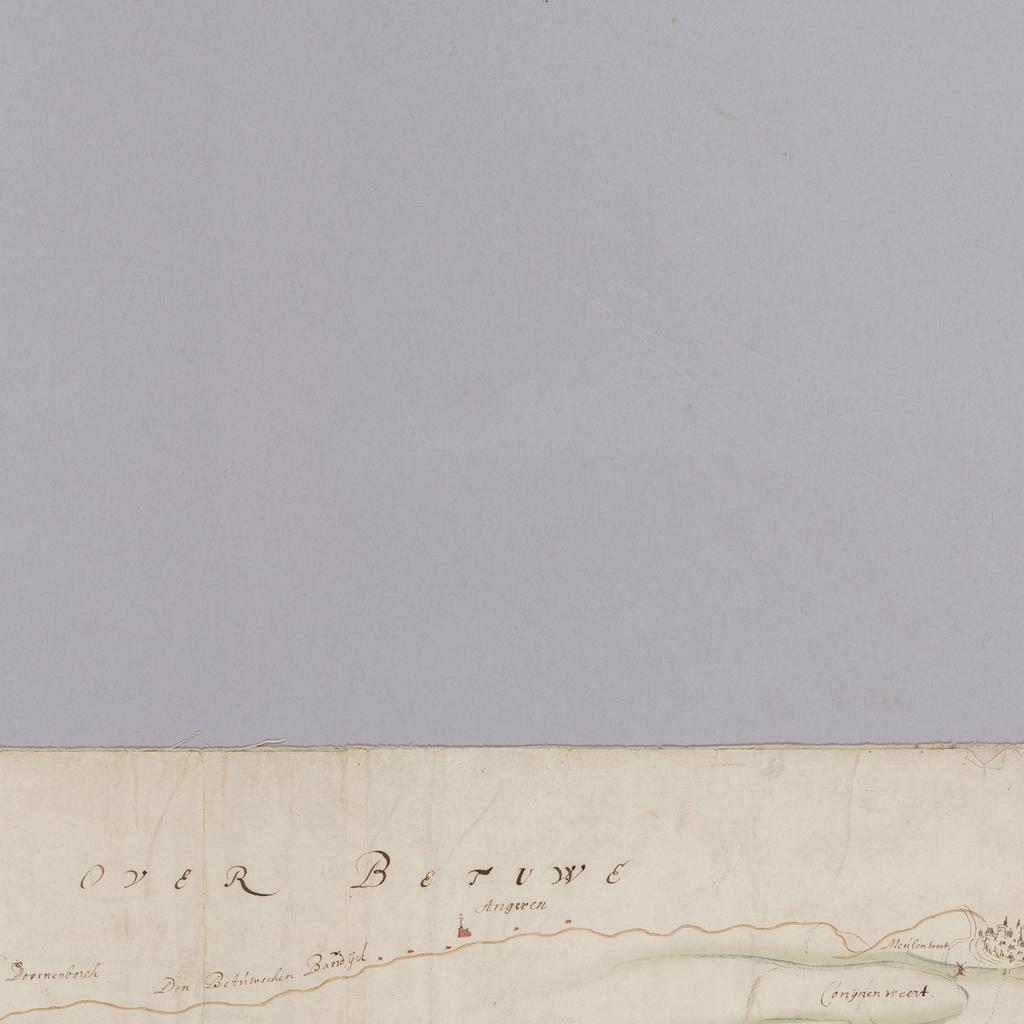 OVER BETUWE
Angeren
Doornenborch
Den Betuwschen Bandijck
Meulenwert
Conijnen weert.